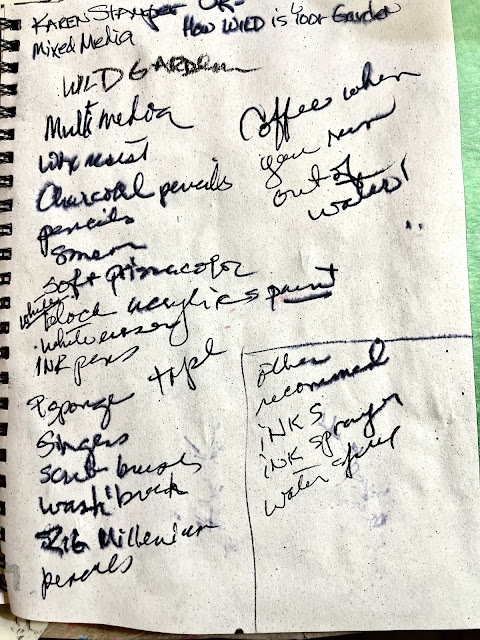 KAREN STAMPER OR-
How WILD is Your Garden
Mixed Media
WILD GARDEN
Multi media
wax resist
Charcoal pencils
pencils
soft prismacolor
white
block acrylics paint
white
INK pens
sponge tape
scrub
wash brush
Zig Millenium
pencils
Coffee when
you run
out of
water!
other
recommend
INKS
INK sprayer
water